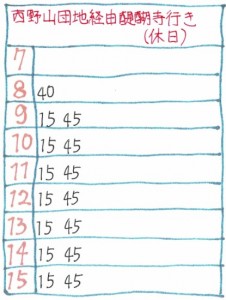 西野山団地経由醍醐寺行き
(休日)
7
8 40
9 15 45
10 15 45
11 15 45
12 15 45
13 15 45
14 15 45
15 15 45